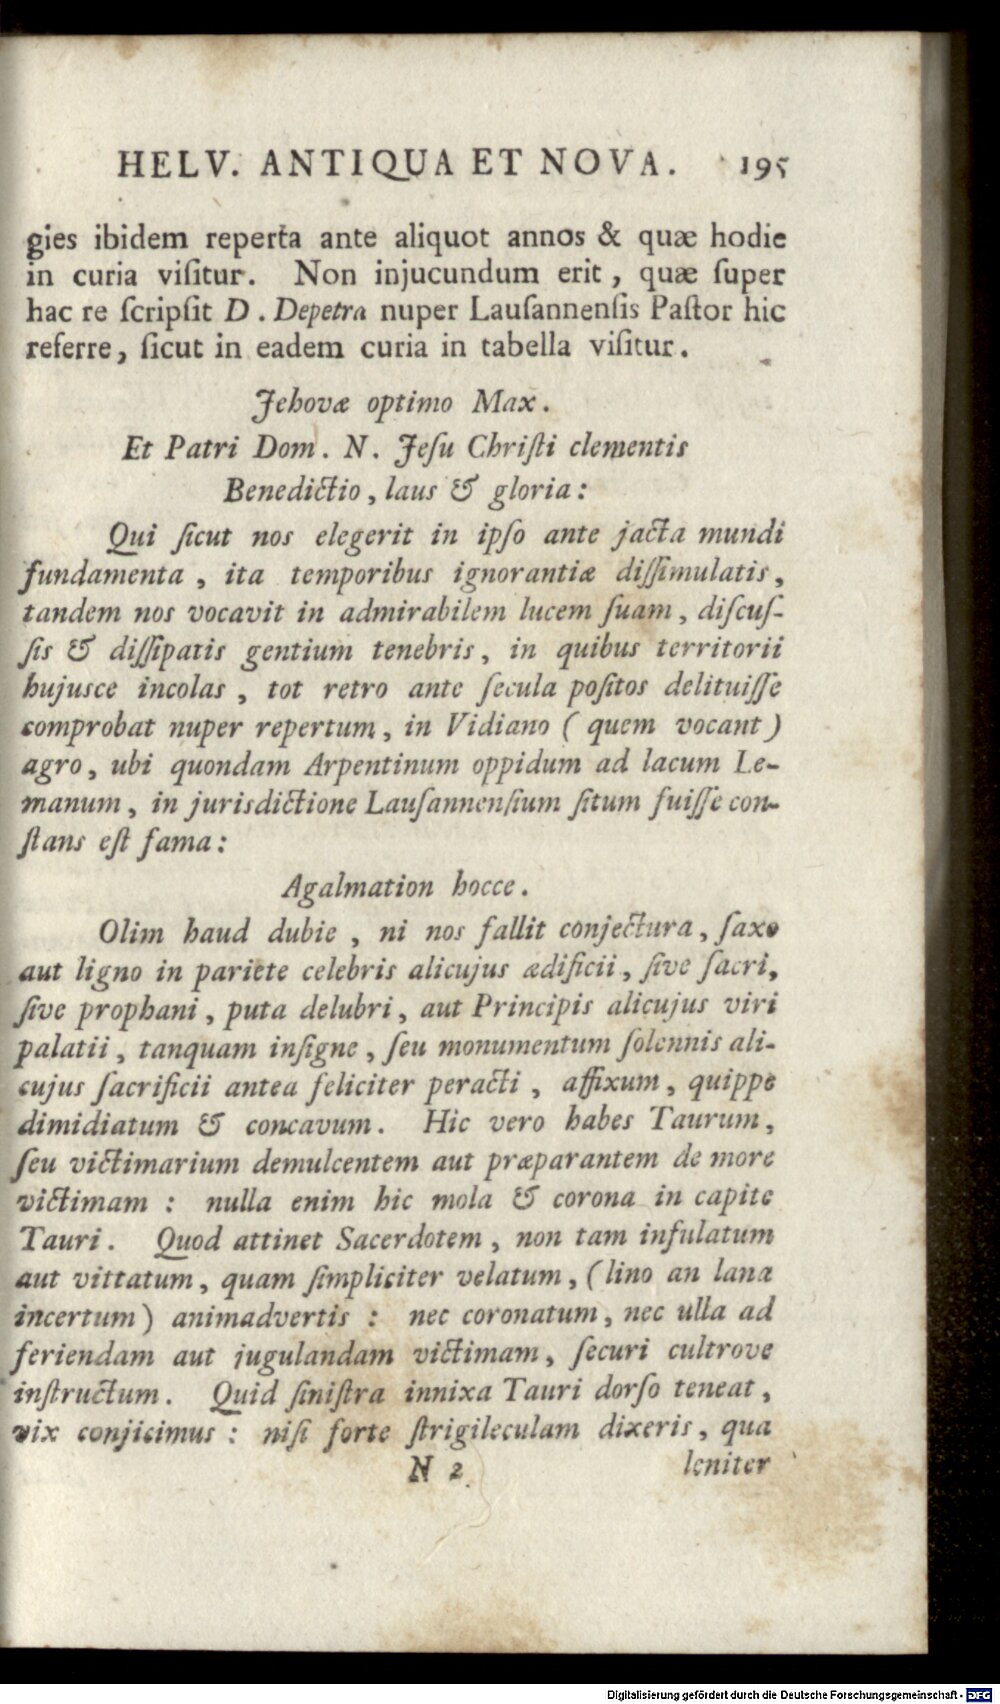 HELV. ANTIQUA ET NOVA. 195
gies ibidem reperta ante aliquot annos & quæ hodie
in curia viſitur. Non injucundum erit, quæ ſuper
hac re ſcripſit D. Depetra nuper Lauſannenſis Paſtor hic
referre, ſicut in eadem curia in tabella viſitur.
Jehovæ optimo Max.
Et Patri Dom. N. Jeſu Chriſti clementis
Benedictio, laus & gloria:
Qui ſicut nos elegerit in ipſo ante jacta mundi
fundamenta, ita temporibus ignorantiæ diſſimulatis,
tandem nos vocavit in admirabilem lucem ſuam, diſcuſ-
ſis & diſſipatis gentium tenebris, in quibus territorii
hujusce incolas, tot retro ante ſecula poſitos delituiſſe
comprobat nuper repertum, in Vidiano (quem vocant)
agro, ubi quondam Arpentinum oppidum ad lacum Le-
manum, in jurisdictione Lauſannenſium ſitum fuiſſe con-
ſtans eſt fama:
Agalmation hocce.
Olim haud dubie, ni nos fallit conjectura, ſaxo
aut ligno in pariete celebris alicujus ædificii, ſive ſacri,
ſive prophani, puta delubri, aut Principis alicujus viri
palatii, tanquam inſigne, ſeu monumentum ſolennis ali-
cujus ſacrificii antea feliciter peracti, affixum, quippe
dimidiatum & concavum. Hic vero habes Taurum,
ſeu victimarium demulcentem aut præparantem de more
victimam: nulla enim hic mola & corona in capite
Tauri. Quod attinet Sacerdotem, non tam infulatum
aut vittatum, quam ſimpliciter velatum, (lino an lana
incertum) animadvertis: nec coronatum, nec ulla ad
feriendam aut jugulandam victimam, ſecuri cultrove
inſtructum. Quid ſiniſtra innixa Tauri dorſo teneat,
vix conjicimus: niſi forte ſtrigileculam dixeris, qua
N 2 leniter
Digitalisierung gefördert durch die Deutsche Forschungsgemeinschaft - DFG